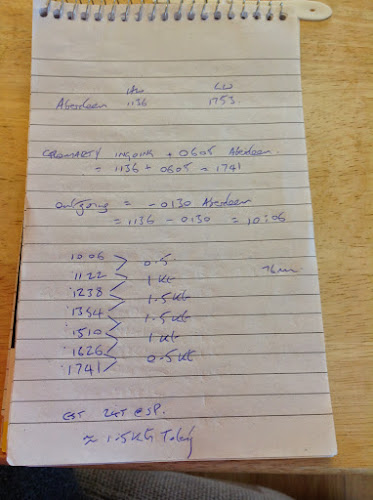 HW LW
Aberdeen 1136 1753
CROMARTY INGOING + 0605 Aberdeen.
= 1136 + 0605 = 1741
outgoing = - 0130 Aberdeen
= 1136 - 0130 = 10:06
1006
0.5
1122
1 Kt
1238 76min
1.5Kt
1354
1.5Kt
1510
1 Kt
1626
0.5Kt
1741
EST 2KT @ SP.
≈ 1.5Kts Today